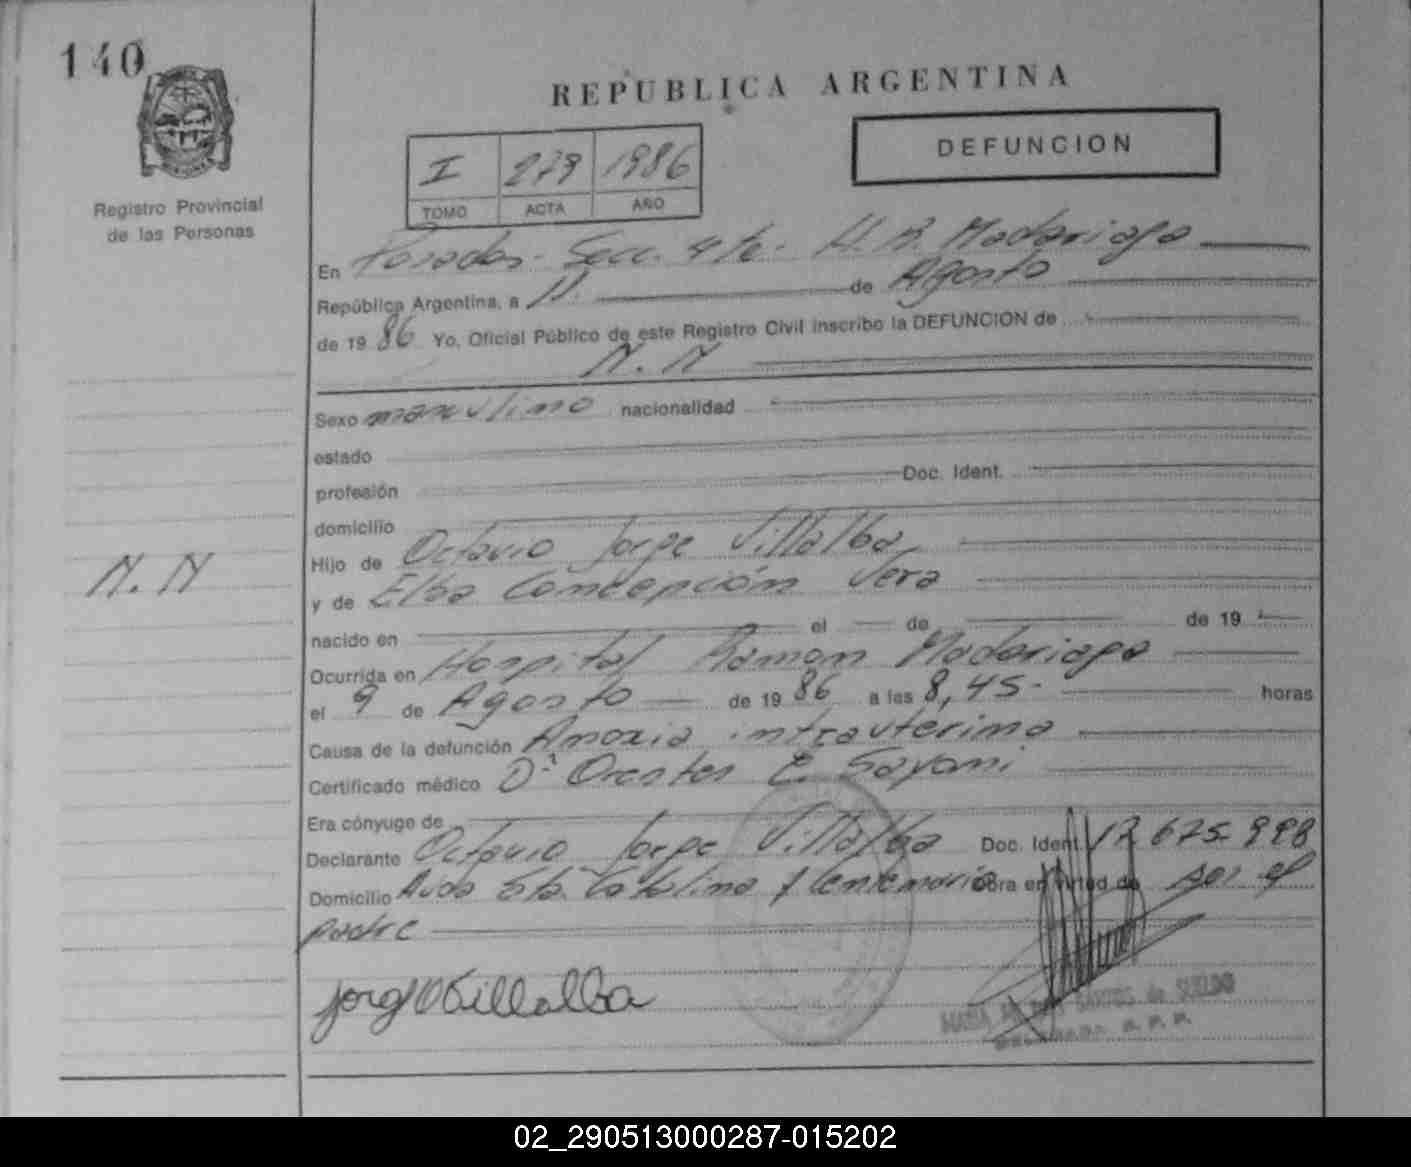 140
REPUBLICA ARGENTINA
DEFUNCION
I 279 1986
TOMO ACTA AÑO
Registro Provincial
de las Personas
En Posadas - Secc. 4ta - H. R. Madariaga
República Argentina, a 11. de Agosto
de 1986 Yo, Oficial Público de este Registro Civil inscribo la DEFUNCION de
N. N
Sexo masculino nacionalidad
estado
profesión Doc. Ident.
domicilio
Hijo de Octavio Jorge Villalba
N. N
y de Elba Concepción Vera
nacido en el de de 19
Ocurrida en Hospital Ramon Madariaga
el 9 de Agosto de 1986 a las 8,45- horas
Causa de la defunción Anoxia intrauterina
Certificado médico Dr Orestes E.
Era cónyuge de
Declarante Octavio Jorge Villalba Doc. Ident. 12.675.998
Domicilio Avda Sta. Catalina y Centenario Obra en virtud de ser el
padre
Jorge O Villalba
MARIA SANTOS de SUELDO
02_290513000287-015202